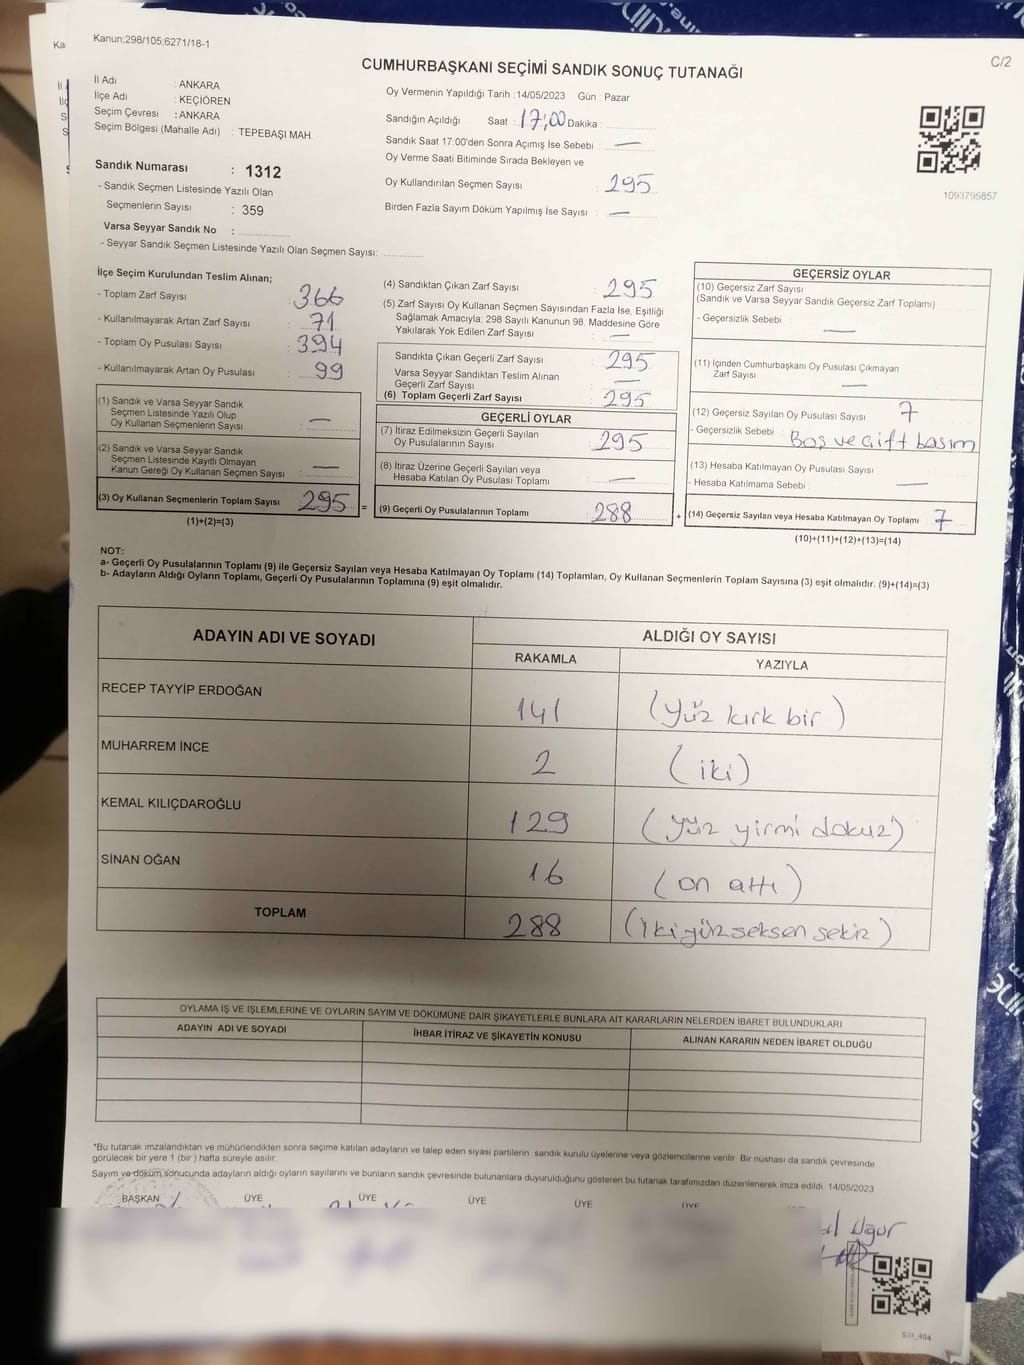 Kanun;298/105;6271/18-1
C/2
CUMHURBAŞKANI SEÇİMİ SANDIK SONUÇ TUTANAĞI
İl Adı : ANKARA
İlçe Adı : KEÇİÖREN
Seçim Çevresi : ANKARA
Seçim Bölgesi (Mahalle Adı) : TEPEBAŞI MAH.
Sandık Numarası : 1312
- Sandık Seçmen Listesinde Yazılı Olan
Seçmenlerin Sayısı : 359
Varsa Seyyar Sandık No :
- Seyyar Sandık Seçmen Listesinde Yazılı Olan Seçmen Sayısı:
Oy Vermenin Yapıldığı Tarih : 14/05/2023 Gün : Pazar
Sandığın Açıldığı Saat : 17;00 Dakika :
Sandık Saat 17:00'den Sonra Açımış İse Sebebi : —
Oy Verme Saati Bitiminde Sırada Bekleyen ve
Oy Kullandırılan Seçmen Sayısı : 295
Birden Fazla Sayım Döküm Yapılmış İse Sayısı : —
1093795857
İlçe Seçim Kurulundan Teslim Alınan;
- Toplam Zarf Sayısı : 366
- Kullanılmayarak Artan Zarf Sayısı : 71
- Toplam Oy Pusulası Sayısı : 394
- Kullanılmayarak Artan Oy Pusulası : 99
(1) Sandık ve Varsa Seyyar Sandık
Seçmen Listesinde Yazılı Olup
Oy Kullanan Seçmenlerin Sayısı : —
(2) Sandık ve Varsa Seyyar Sandık
Seçmen Listesinde Kayıtlı Olmayan
Kanun Gereği Oy Kullanan Seçmen Sayısı : —
(3) Oy Kullanan Seçmenlerin Toplam Sayısı 295 =
(1)+(2)=(3)
(4) Sandıktan Çıkan Zarf Sayısı : 295
(5) Zarf Sayısı Oy Kullanan Seçmen Sayısından Fazla İse, Eşitliği
Sağlamak Amacıyla; 298 Sayılı Kanunun 98. Maddesine Göre
Yakılarak Yok Edilen Zarf Sayısı : —
Sandıkta Çıkan Geçerli Zarf Sayısı : 295
Varsa Seyyar Sandıktan Teslim Alınan
Geçerli Zarf Sayısı : —
(6) Toplam Geçerli Zarf Sayısı : 295
GEÇERLİ OYLAR
(7) İtiraz Edilmeksizin Geçerli Sayılan
Oy Pusulalarının Sayısı : 295
(8) İtiraz Üzerine Geçerli Sayılan veya
Hesaba Katılan Oy Pusulası Toplamı : —
(9) Geçerli Oy Pusulalarının Toplamı : 288 +
GEÇERSİZ OYLAR
(10) Geçersiz Zarf Sayısı
(Sandık ve Varsa Seyyar Sandık Geçersiz Zarf Toplamı)
- Geçersizlik Sebebi : —
(11) İçinden Cumhurbaşkanı Oy Pusulası Çıkmayan
Zarf Sayısı : —
(12) Geçersiz Sayılan Oy Pusulası Sayısı 7
- Geçersizlik Sebebi : Boş ve çift basım
(13) Hesaba Katılmayan Oy Pusulası Sayısı
- Hesaba Katılmama Sebebi : —
(14) Geçersiz Sayılan veya Hesaba Katılmayan Oy Toplamı 7
(10)+(11)+(12)+(13)=(14)
NOT:
a- Geçerli Oy Pusulalarının Toplamı (9) ile Geçersiz Sayılan veya Hesaba Katılmayan Oy Toplamı (14) Toplamları, Oy Kullanan Seçmenlerin Toplam Sayısına (3) eşit olmalıdır. (9)+(14)=(3)
b- Adayların Aldığı Oyların Toplamı, Geçerli Oy Pusulalarının Toplamına (9) eşit olmalıdır.
ADAYIN ADI VE SOYADI ALDIĞI OY SAYISI
RAKAMLA YAZIYLA
RECEP TAYYİP ERDOĞAN 141 (yüz kırk bir)
MUHARREM İNCE 2 (iki)
KEMAL KILIÇDAROĞLU 129 (yüz yirmi dokuz)
SİNAN OĞAN 16 (on altı)
TOPLAM 288 (iki yüz seksen sekiz)
OYLAMA İŞ VE İŞLEMLERİNE VE OYLARIN SAYIM VE DÖKÜMÜNE DAİR ŞİKAYETLERLE BUNLARA AİT KARARLARIN NELERDEN İBARET BULUNDUKLARI
ADAYIN ADI VE SOYADI İHBAR İTİRAZ VE ŞİKAYETİN KONUSU ALINAN KARARIN NEDEN İBARET OLDUĞU
*Bu tutanak imzalandıktan ve mühürlendikten sonra seçime katılan adayların ve talep eden siyasi partilerin sandık kurulu üyelerine veya gözlemcilerine verilir. Bir nüshası da sandık çevresinde
görülecek bir yere 1 (bir) hafta süreyle asılır.
Sayım ve döküm sonucunda adayların aldığı oyların sayılarını ve bunların sandık çevresinde bulunanlara duyurulduğunu gösteren bu tutanak tarafımızdan düzenlenerek imza edildi. 14/05/2023
BAŞKAN ÜYE ÜYE ÜYE ÜYE ÜYE
Uğur